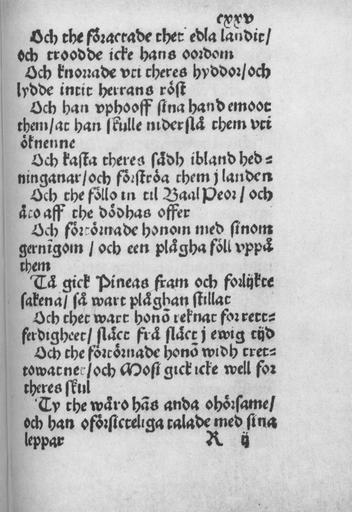 cxxv
Och the föractade thet edla landit/
och troodde icke hans oordom
Och knorrade vti theres hyddor/och
lydde intit herrans röst
Och han vphooff sina hand emoot
them/at han skulle niderslå them vti
öknenne
Och kasta theres sädh ibland hed-
ninganar/och förströa them j landen
Och the föllo in til Baal Peor/och
åto aff the dödhas offer
Och förtörnade honom med sinom
gernīgom/och een plågha föll vppå
them
Tå gick Pineas fram och forlijkte
sakena/så wart plåghan stillat
Och thet wart honō reknat for rett-
ferdigheet/slåct frå slåct j ewig tijd
Och the förtörnade honō widh tret-
towatnet/och Mosi gick icke well for
theres skul
Ty the wåro hās anda ohörsame/
och han oförsicteliga talade med sina
leppar R ij